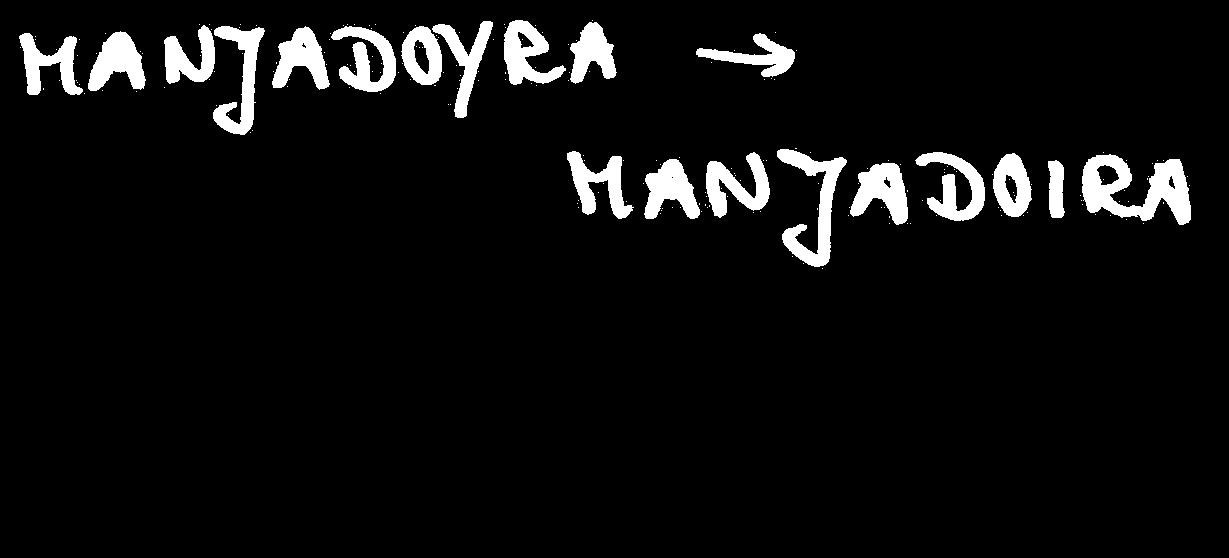 MANJADOYRA →
MANJADOIRA